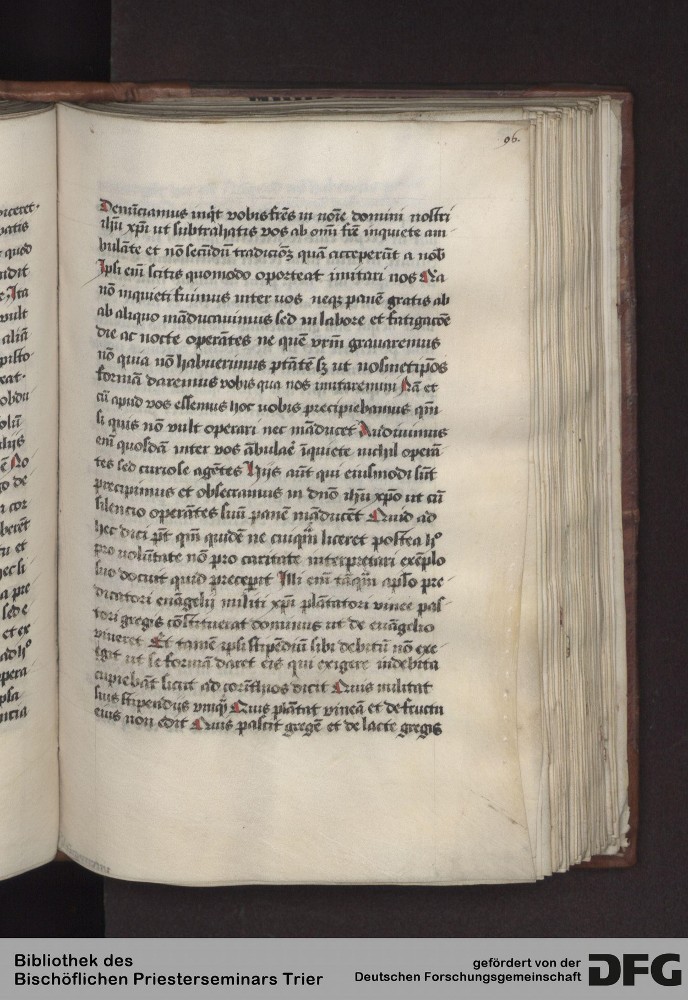 96.
Denūciamus inqͥt vobis fr̄es in noīe domini nostri
ihū xp̄i ut subtrahatis vos ab om̄i fr̄e inquiete am-
bulāte et nō scd̄m tradicionē quā acceperūt a nob̄
Ipsi em̄ scitis quomodo oporteat imitari nos Nā
nō inquieti fuimus inter vos neqꝫ panē gratis ab
ab aliquo māducavimus sed in labore et fatigacōe
die ac nocte operātes ne quē vrm̄ gravaremus
nō quia nō habuerimus ptātē sꝫ ut nosmetip̄os
formā daremus vobis qua nos imitaremini Nā et
cū apud vos essemus hoc vobis precipiebamus qm̄
si quis nō vult operari nec māducet Audivimus
em̄ quosdā inter vos ābulare īquiete nichil operā
tes sed curiose agētes Hijs aūt qui eiusmodi sūt
precipimus et obsecramus in dn̄o ihū xp̄o ut cū
silencio operātes suū panē māducēt Quid ad
hec dici pn̄t qm̄ quidē ne cuiqm̄ liceret postea hͦ
pro volūtate nō pro caritate interpretari exēplo
suo docuit quid preceperit Illi em̄ tāqm̄ aplo pre-
dicatori evāgelij militi xp̄i plātatori vinee pas-
tori gregis cōstituerat dominus ut de evāgelio
viveret Et tamē ipse stipendiū sibi debitū nō exe-
git ut se formā daret eis qui exigere indebita
cupiebāt sicut ad corīthios dicit Quis militat
suis stipendijs vnqͣ Quis plātat vineā et de fructu
eius non edit Quis pascit gregē et de lacte gregis
Bibliothek des
Bischöflichen Priesterseminars Trier
gefördert von der
Deutschen Forschungsgemeinschaft
DFG